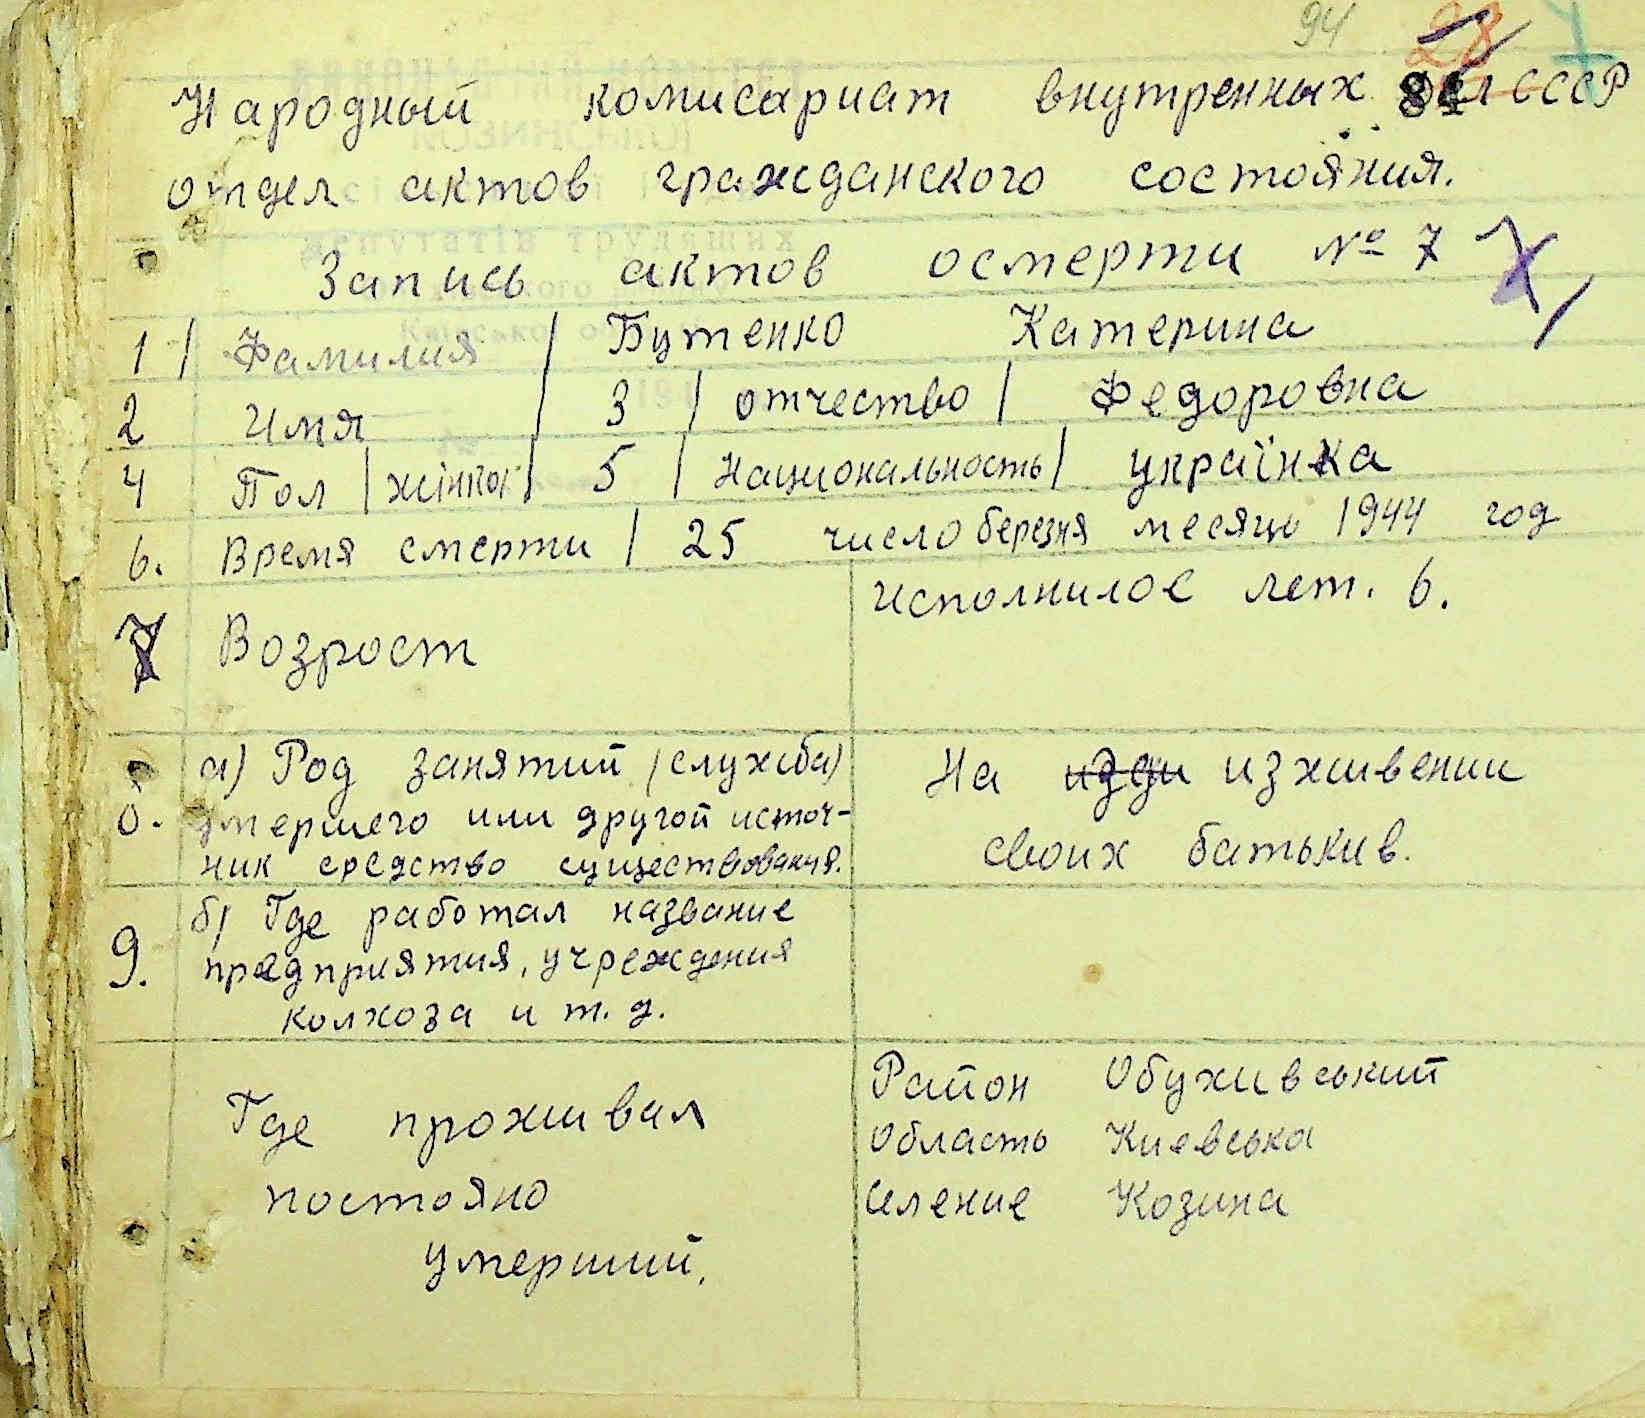 94 28
Народный комисариат внутренных дел СССР
81
отдел актов гражданского состояния.
Запись актов осмерти № 7
1 / Фамилия / Бутенко Катерина
2 Имя / 3 / отчество / Федоровна
4 Пол / жінка / 5 / Национальность / українка
6. Время смерти / 25 число березня месяць 1944 год
7 Возрост
исполнилос лет. 6.
8. а) Род занятий (служба)
умершего или другой источ-
ник средство существования.
На изди изживении
своих батькив.
9. б) Где работал название
предприятия, учреждения
колхоза и т. д.
Где проживал
постояно
умерший.
Район Обухивський
область Киевська
селение Козина